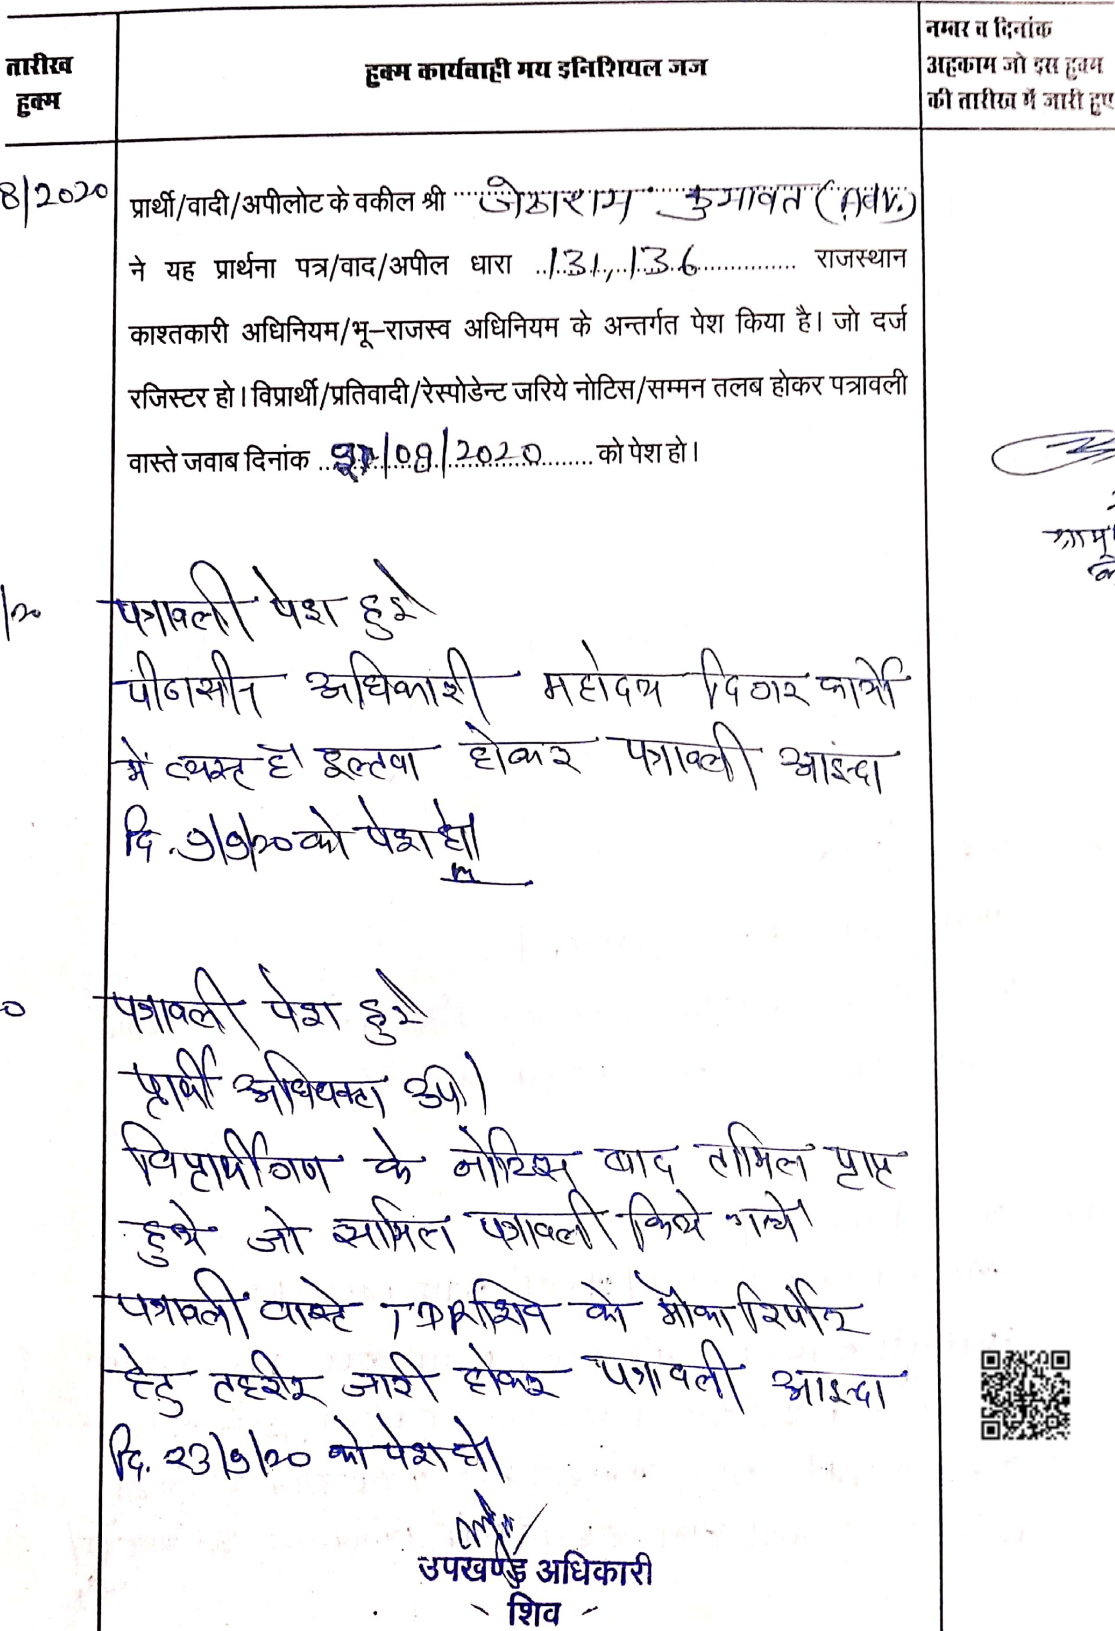 तारीख
हुक्म
हुक्म कार्यवाही मय इनिशियल जज
नम्बर व दिनांक
अहकाम जो इस हुक्म
की तारीख में जारी हुए
8/2020
प्रार्थी/वादी/अपीलोट के वकील श्री जेठाराम कुमावत (Adv.)
ने यह प्रार्थना पत्र/वाद/अपील धारा 131, 136 राजस्थान
काश्तकारी अधिनियम/भू–राजस्व अधिनियम के अन्तर्गत पेश किया है। जो दर्ज
रजिस्टर हो। विप्रार्थी/प्रतिवादी/रेस्पोडेन्ट जरिये नोटिस/सम्मन तलब होकर पत्रावली
वास्ते जवाब दिनांक /08/2020 को पेश हो।
/20
पत्रावली पेश हुई
पीठासीन अधिकारी महोदय दिगर कार्यो
में व्यस्त है इल्तवा होकर पत्रावली आइन्दा
दि. 9/9/20 को पेश हो।
0
पत्रावली पेश हुई
प्रार्थी अधिवक्ता उप।
विप्रार्थीगण के नोटिस बाद तामिल प्राप्त
हुये जो सामिल पत्रावली किये गये।
पत्रावली वास्ते TDR शिव को मौका रिर्पोट
हेतु तहरीर जारी होकर पत्रावली आइन्दा
दि. 23/9/20 को पेश हो।
उपखण्ड अधिकारी
शिव